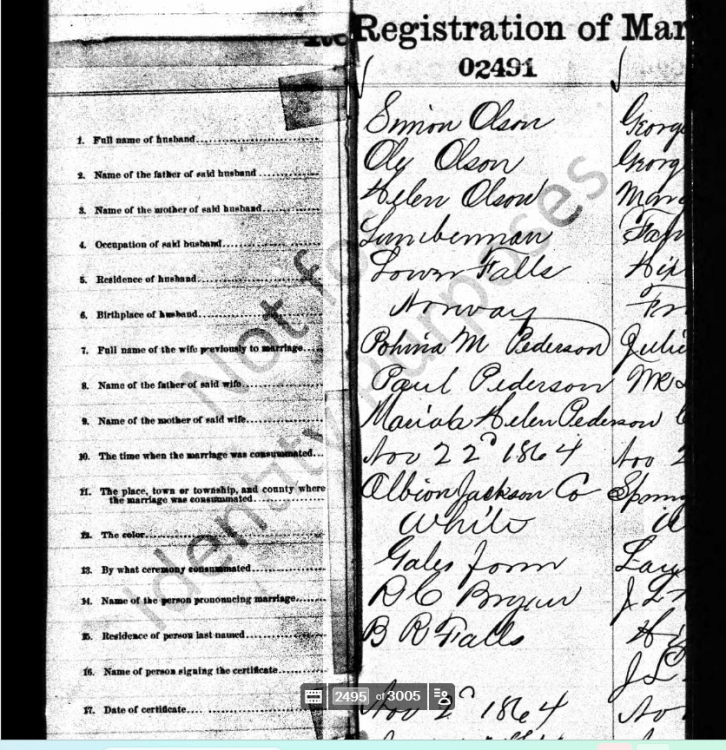 Registration of Mar
02491
1. Full name of husband Simon Olson George
2. Name of the father of said husband Ole Olson Georg
3. Name of the mother of said husband Helen Olson Mar
4. Occupation of said husband Lumberman Far
5. Residence of husband Lower Falls Hix
6. Birthplace of husband Norway
7. Full name of the wife previously to marriage M Pederson Julie
8. Name of the father of said wife Paul Pederson Wm
9. Name of the mother of said wife Mariah Helen Pederson
10. The time when the marriage was consummated Nov 22d 1864 Nov 2
11. The place, town or township, and county where
the marriage was consummated Albion Jackson Co
12. The color White
13. By what ceremony consummated form
14. Name of the person pronouncing marriage
15. Residence of person last named B R Falls
16. Name of person signing the certificate
17. Date of certificate Nov 2d 1864 No
Not for
Identity Purposes
2495 of 3005